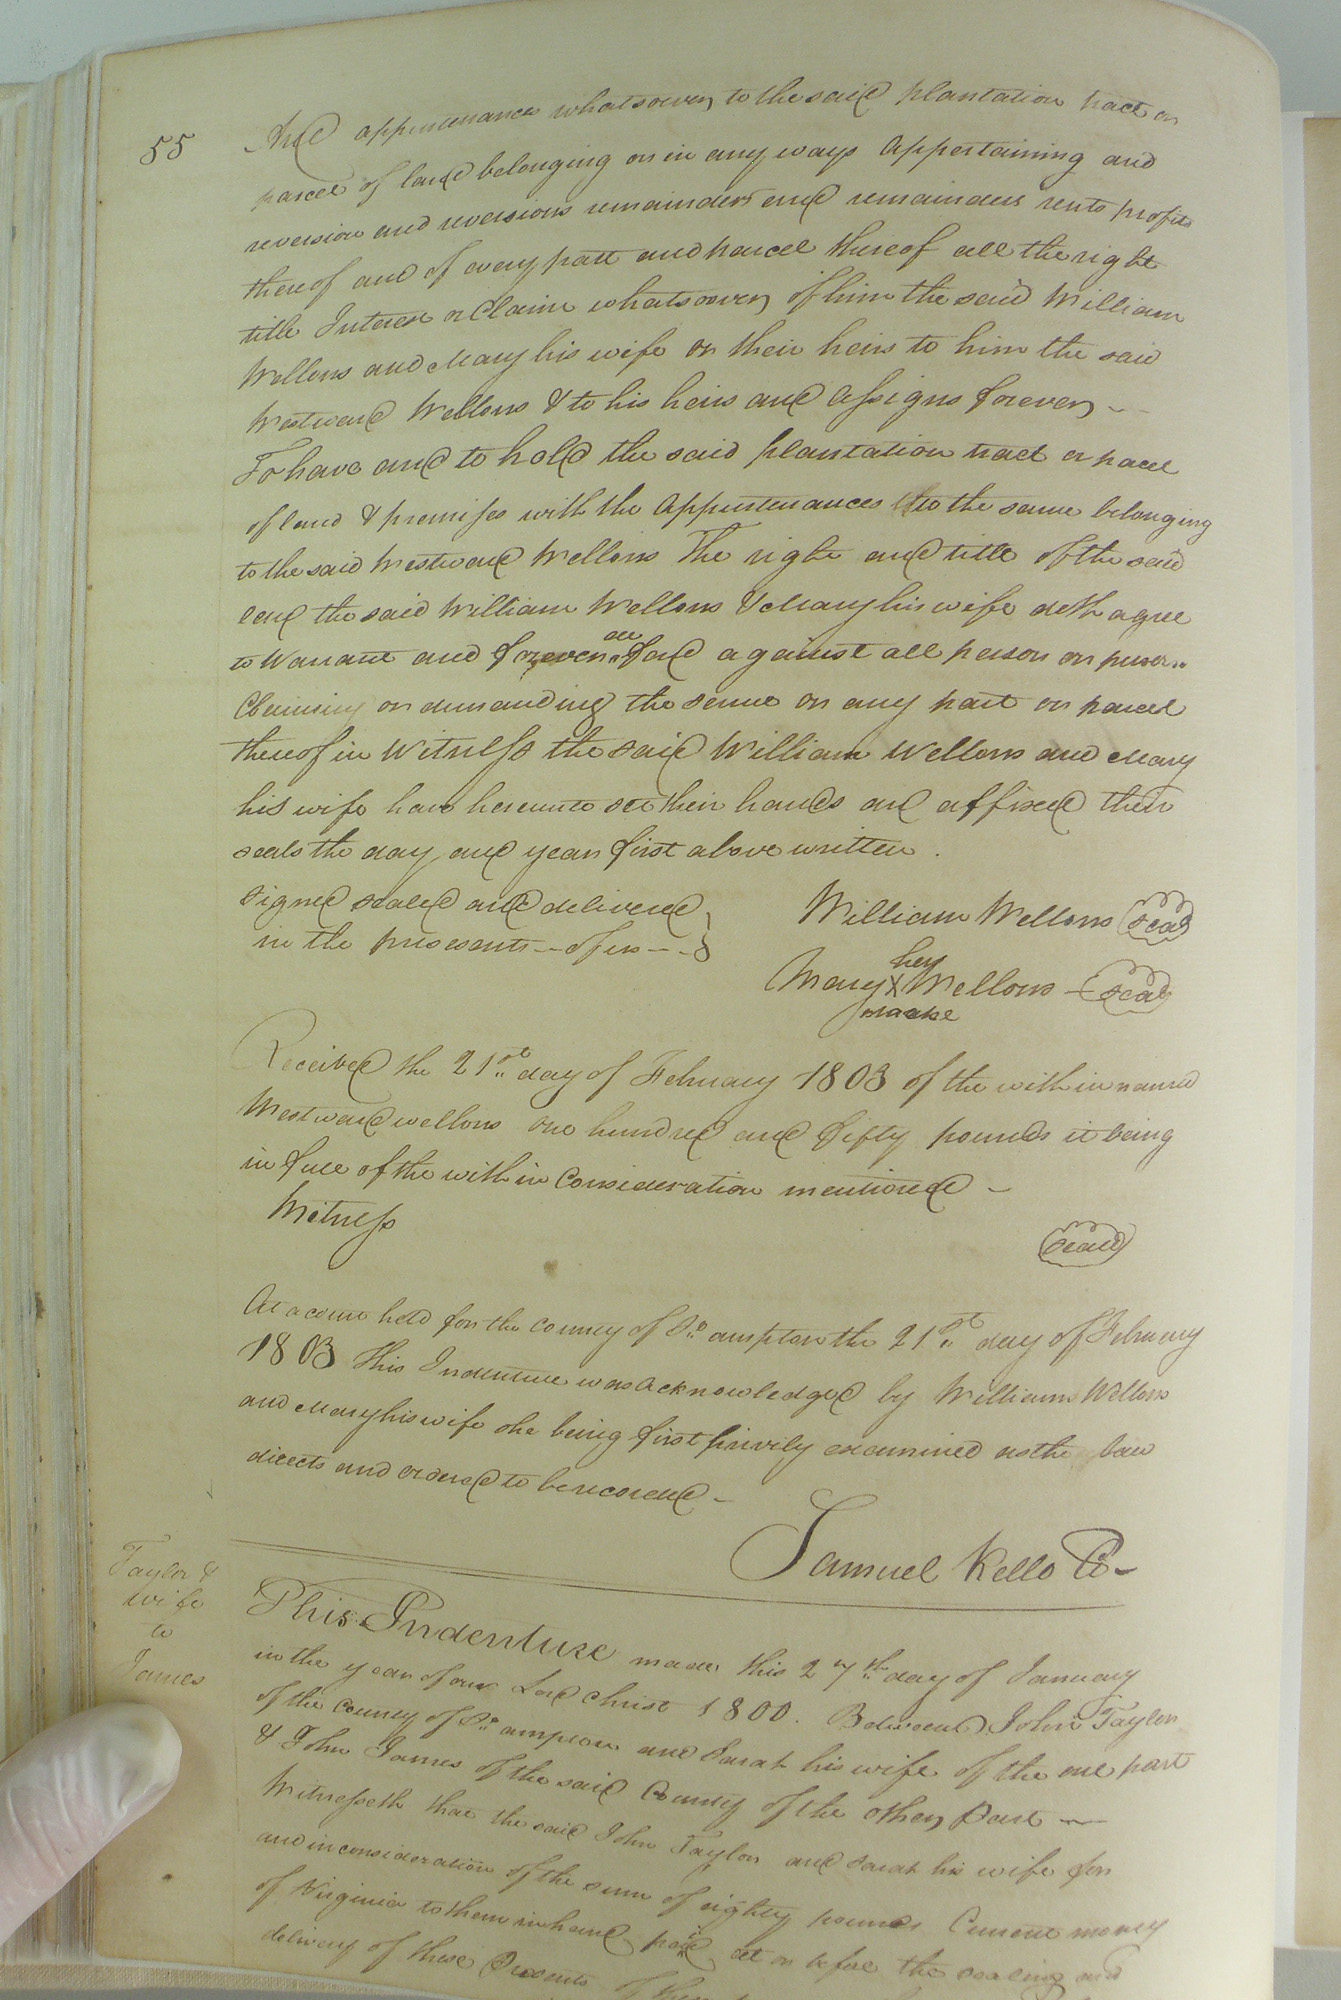 55
And appurtenance whatsoever to the said plantation tract or
parcel of land belonging or in any ways Appertaining and
reversion and reversions remainders and remainders rents profits
thereof and of every part and parcel thereof all the right
title Interest or Claim whatsoever of him the said William
Wellons and Mary his wife or their heirs to him the said
Westward Wellons & to his heirs and Assigns forever —
To have and to hold the said plantation tract or parcel
of land & premises with the Appurtenances to the same belonging
to the said Westward Wellons The right and title of the said
land the said William Wellons & Mary his wife doth agree
to Warrant and forever defend against all person or persons
Claiming or demanding the same or any part or parcel
thereof in Witness the said William Wellons and Mary
his wife have hereunto set their hands and affixed their
seals the day and year first above written.
Signed sealed and delivered
in the presents — of us —
William Wellons Seal
her
Mary X Wellons Seal
marke
Received the 21st day of February 1803 of the within named
Westward wellons one hundred and fifty pounds it being
in full of the within Consideration mentioned —
Witness
Seal
At a court held for the County of So.ampton the 21st day of February
1803 This Indenture was Acknowledged by William Wellons
and Mary his wife she being first privily examined as the law
directs and ordered to be recorded —
Samuel Kello
Taylor &
wife
to
James
This Indenture made this 27th day of January
in the year of our Lord Christ 1800. Between John Taylor
of the County of So.ampton and Sarah his wife of the one part
& John James of the said County of the other Part —
Witnesseth that the said John Taylor and Sarah his wife for
and in consideration of the sum of eighty pounds Current money
of Virginia to them in hand paid at or before the sealing and
delivery of these Presents